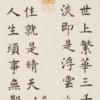 世上繁華三
淡即是浮雲
住就是晴天
人生煩事無